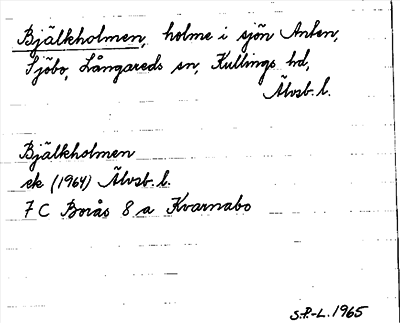 Bjälkholmen, holme i sjön Anten,
Sjöbo, Långareds sn, Kullings hd,
Älvsb. l.
Bjälkholmen
ek (1964) Älvsb. l.
7 C Borås 8 a Kvarnabo
S.P.-L. 1965